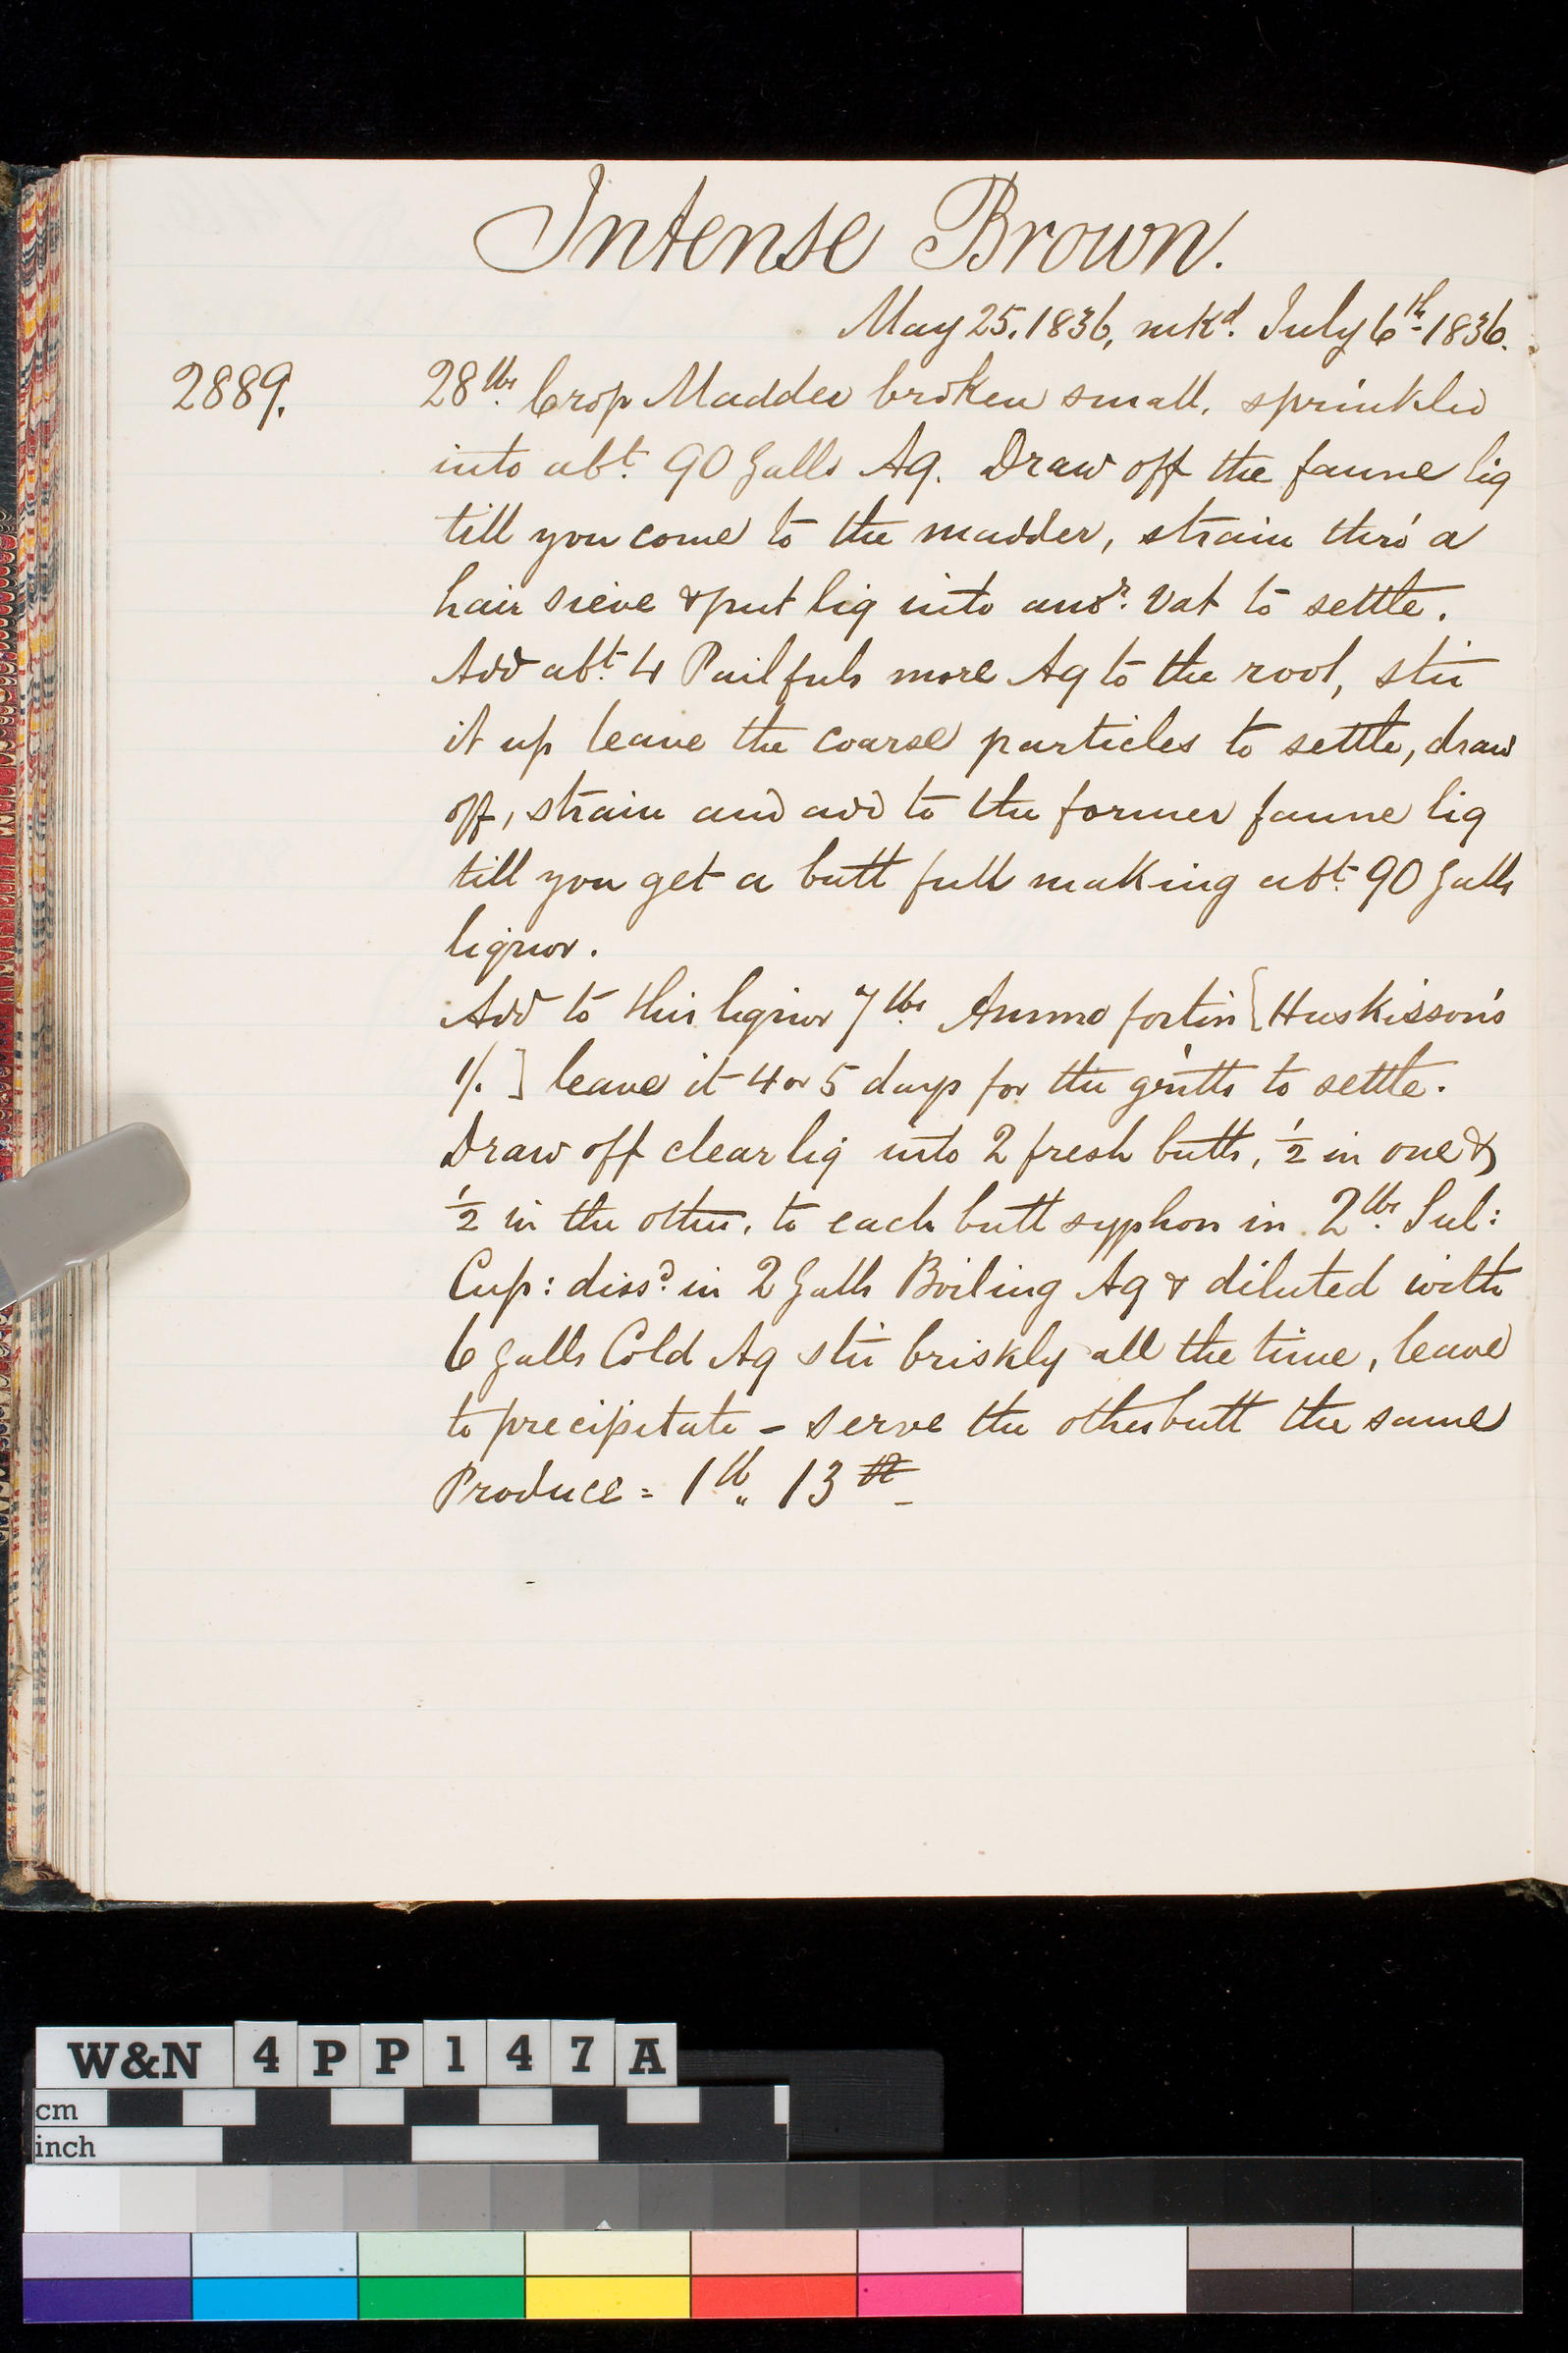 Intense Brown.
May 25. 1836, mkd. July 6th 1836.
2889. 28 lbs. Crop Madder broken small, sprinkled
into abt. 90 Galls Aq. Draw off the faune liq
till you come to the madder, strain thro' a
hair sieve & put liq into anor. Vat to settle.
Add abt. 4 Pailfuls more Aq to the root, stir
it up leave the coarse particles to settle, draw
off, strain and add to the former faune liq
till you get a butt full making abt. 90 Galls
liquor.
Add to this liquor 7 lbs. Ammo fortis {Huskisson's
1/.] leave it 4 or 5 days for the gritts to settle.
Draw off clear liq into 2 fresh butts, 1/2 in one &
1/2 in the other, to each butt syphon in 2 lbs. Sul:
Cup: dissd. in 2 Galls Boiling Aq & diluted with
6 Galls Cold Aq stir briskly all the time, leave
to precipitate - serve the other butt the same
Produce = 1 lb. 13
W&N 4PP147A
cm
inch